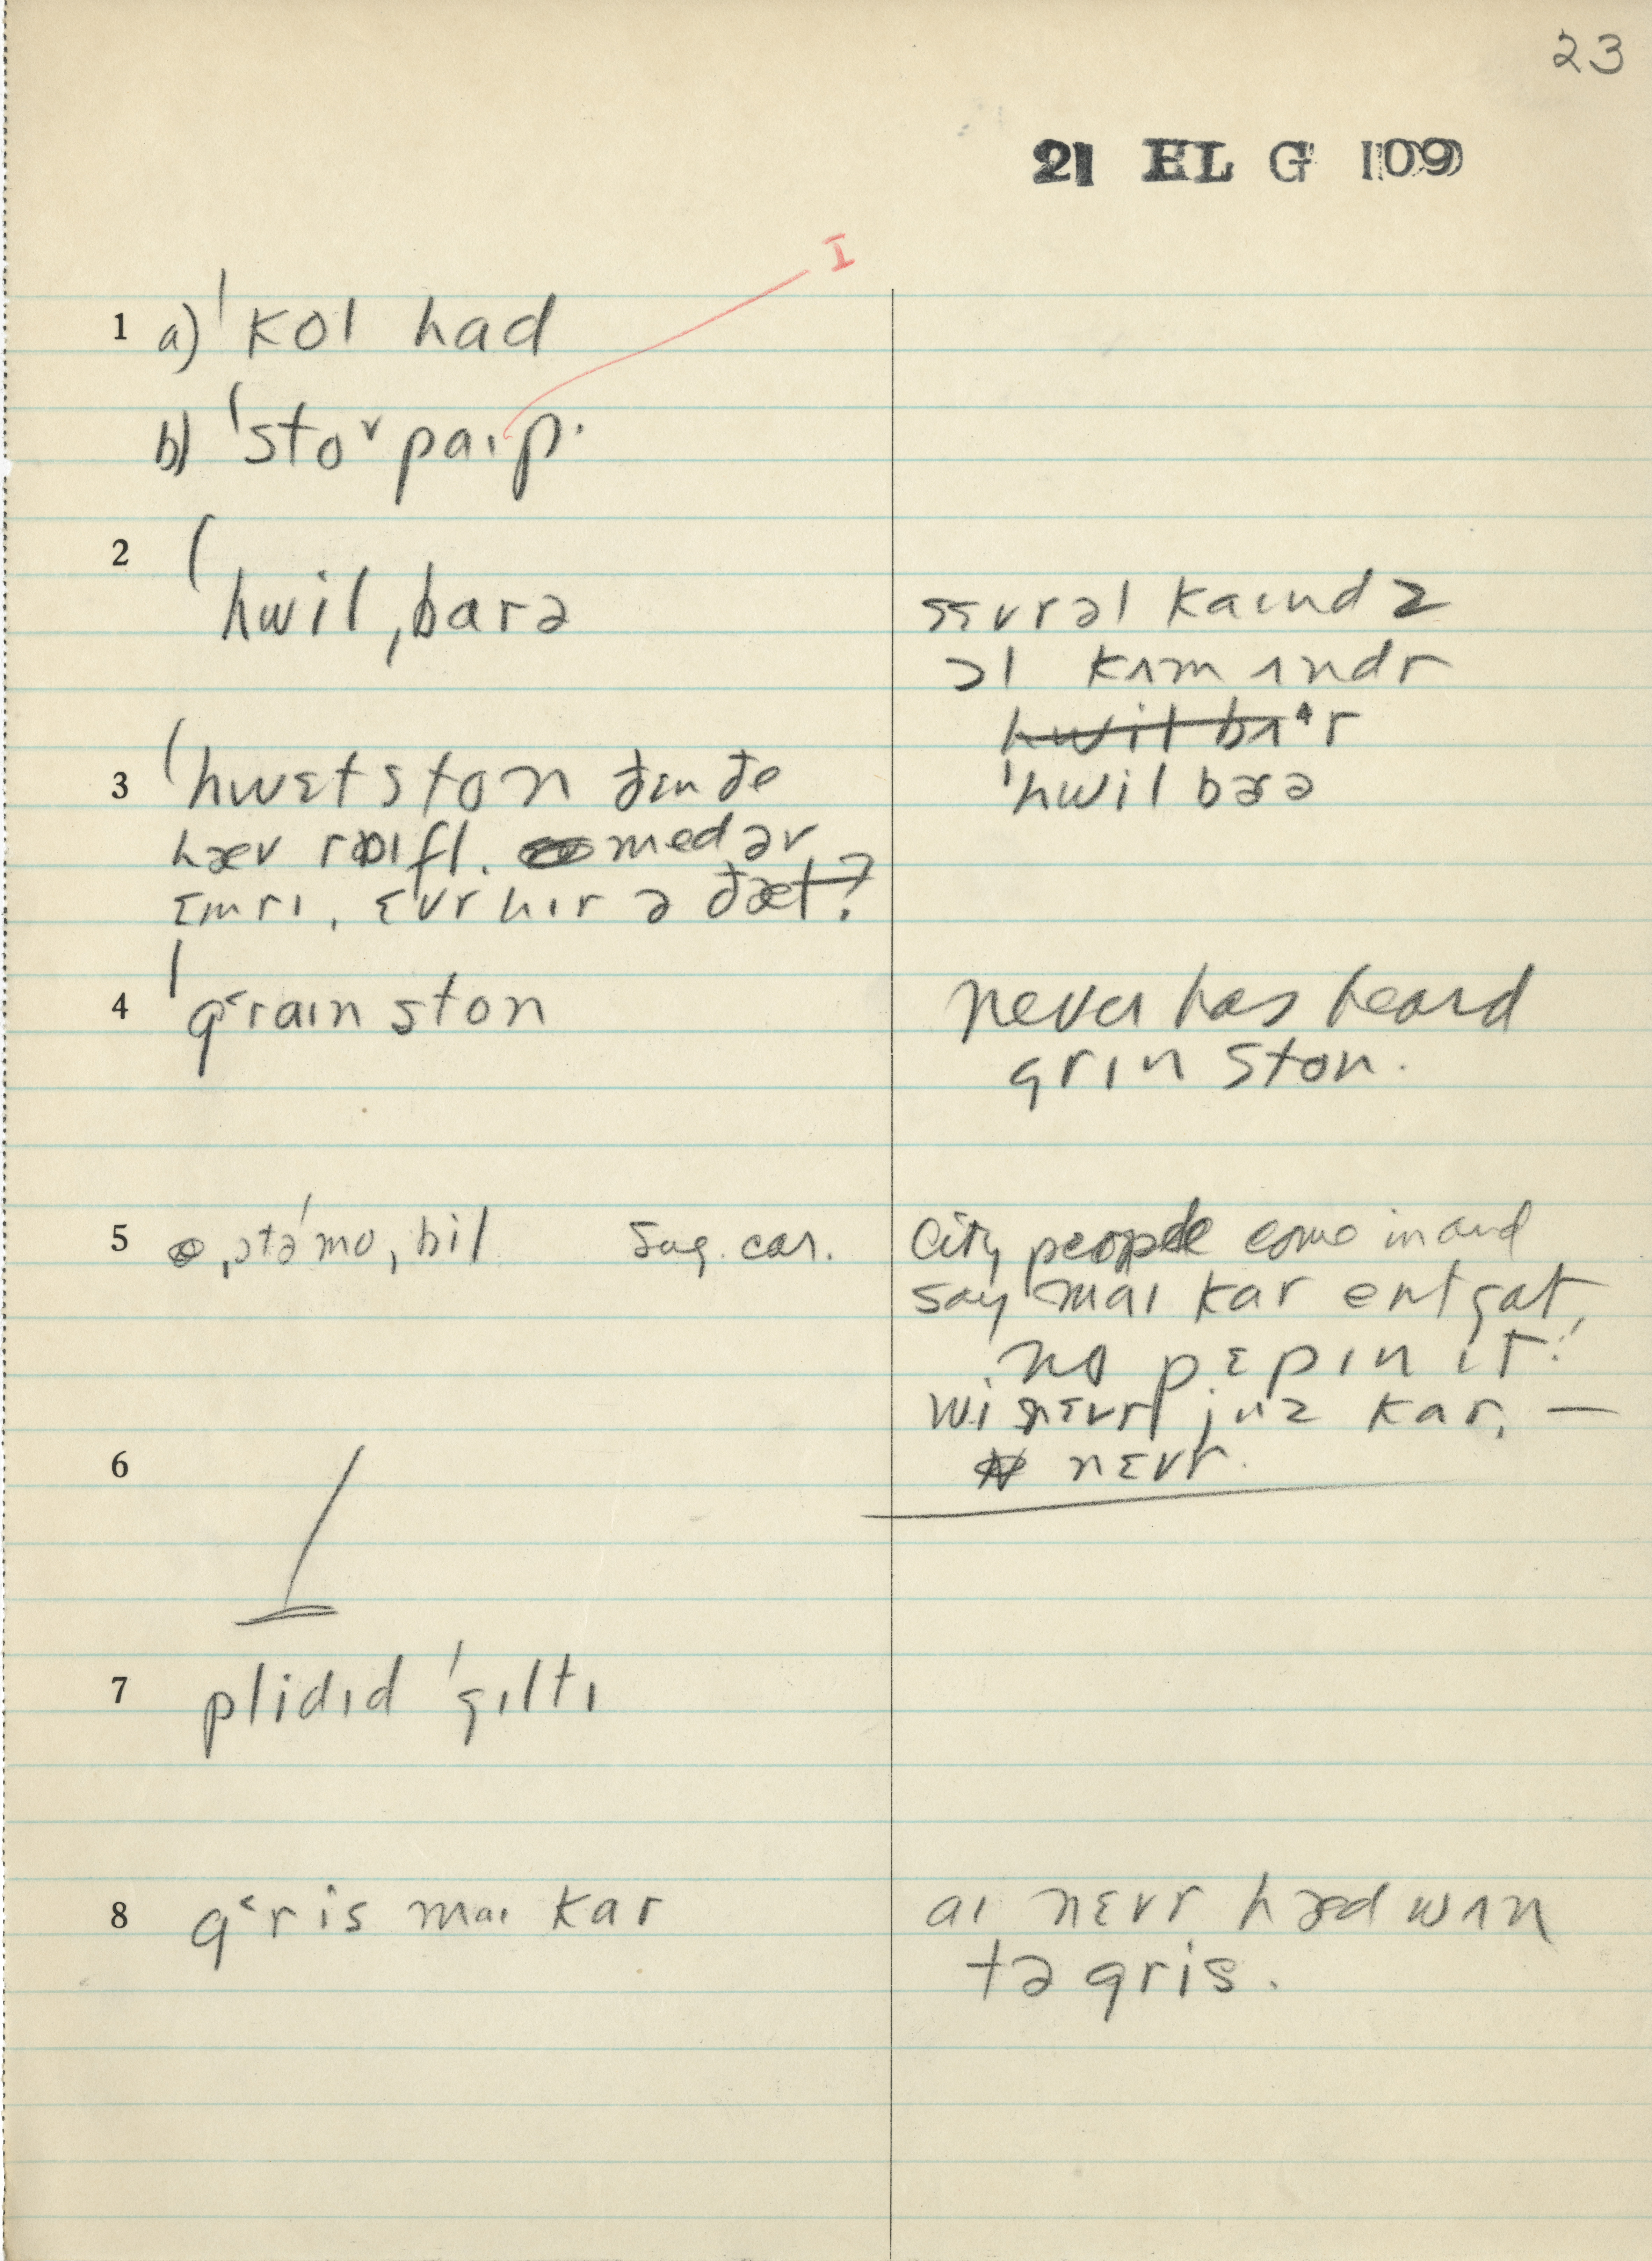 23
21 HL G 109
I
1 a) ˈkol had
b) ˈstoᵛ paɪp.
2 ˈhwilˌbarə
sɛvrəl kaɪndz
əl kʌm ʌndr
hwil bʌˑr
ˈhwil bərə
3 ˈhwɛtston đɛn đe
hæv raɪfl. med əv
ɛmrɪ, ɛvr hɪr ə đæt?
4 ˈg˂raɪn ston
never has heard
grɪn ston.
5 ˌɔtəˈmoˌbil sug. car.
City people come in and
say maɪ kar ent gat
no pɛp ɪn it!
wi nɛvr juz kar, —
nɛvr.
6
7 plidɪd ˈgɪltɪ
8 g˂ris maɪ kar
aɪ nɛvr hæd wʌn
tə gris.